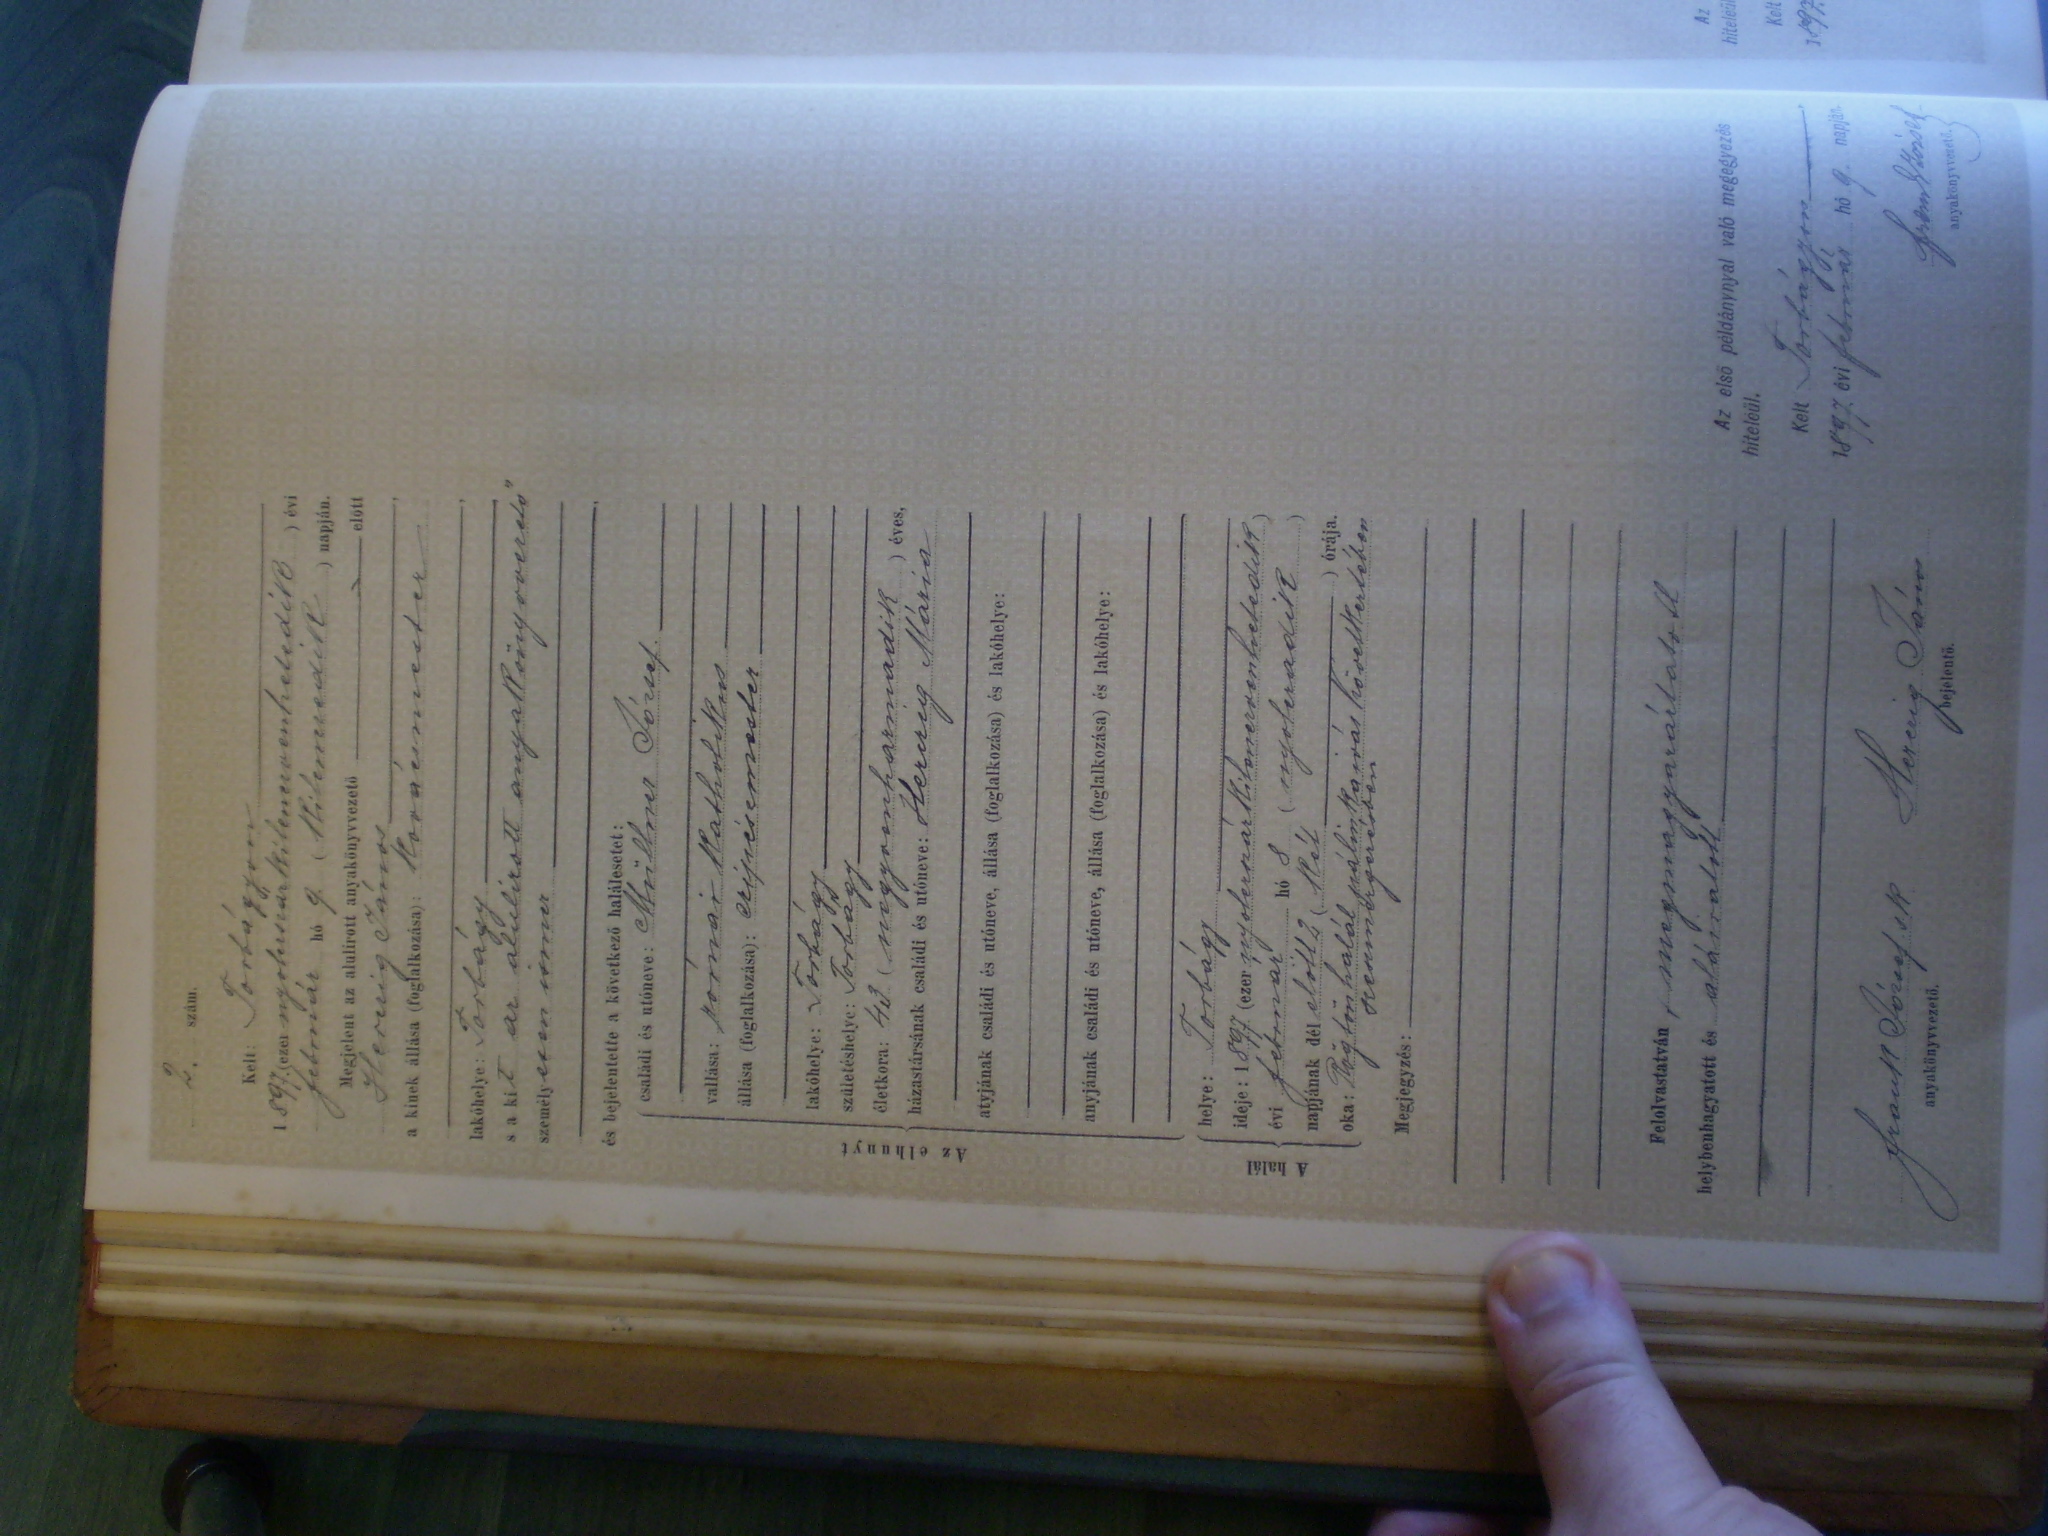 2. szám.
Kelt: Torbágyon
1897. (ezer nyolcszázkilencvenhetedik) évi
február hó 9. (kilencedik) napján.
Megjelent az alulirott anyakönyvvezető előtt
Herzig János
a kinek állása (foglalkozása): kovácsmester
lakóhelye: Torbágy
s a kit az alulirott anyakönyvvezető
személyesen ismer
és bejelentette a következő halálesetet:
Az elhunyt
családi és utóneve: Müllner József.
vallása: római katholikus
állása (foglalkozása): czipészmester
lakóhelye: Torbágy
születéshelye: Torbágy
életkora: 43 (negyvenharmadik) éves,
házastársának családi és utóneve: Herzig Mária
atyjának családi és utóneve, állása (foglalkozása) és lakóhelye:
anyjának családi és utóneve, állása (foglalkozása) és lakóhelye:
A halál
helye: Torbágy
ideje: 1897 (ezer nyolcszázkilencvenhetedik)
évi február hó 8 (nyolczadik)
napjának dél előtt 2 (két) órája.
oka: Rögtöni halál pálinkaivás következtében
Megjegyzés:
Felolvastatván, megmagyaráztatott
helybenhagyatott és aláíratott
Frank József sk Herzig János
anyakönyvvezető. bejelentő.
Az első példánynyal való megegyezés
hiteléül.
Kelt Torbágyon
1897. évi február hó 9. napján.
Frank József
anyakönyvvezető.
Az
Kelt
1897.